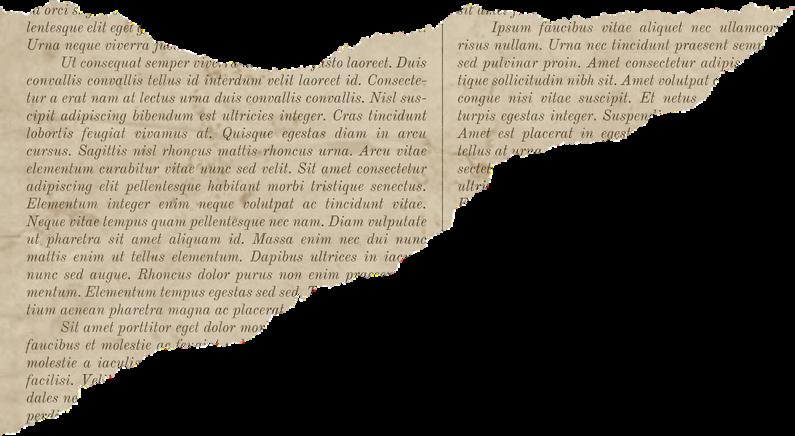 lentesque elit eget
Urna neque viverra
Ut consequat semper viverra justo laoreet. Duis
convallis convallis tellus id interdum velit laoreet id. Consecte-
tur a erat nam at lectus urna duis convallis convallis. Nisl sus-
cipit adipiscing bibendum est ultricies integer. Cras tincidunt
lobortis feugiat vivamus at. Quisque egestas diam in arcu
cursus. Sagittis nisl rhoncus mattis rhoncus urna. Arcu vitae
elementum curabitur vitae nunc sed velit. Sit amet consectetur
adipiscing elit pellentesque habitant morbi tristique senectus.
Elementum integer enim neque volutpat ac tincidunt vitae.
Neque vitae tempus quam pellentesque nec nam. Diam vulputate
ut pharetra sit amet aliquam id. Massa enim nec dui nunc
mattis enim ut tellus elementum. Dapibus ultrices in
nunc sed augue. Rhoncus dolor purus non enim
mentum. Elementum tempus egestas sed sed.
tium aenean pharetra magna ac placerat
Sit amet porttitor eget dolor
faucibus et molestie ac feugiat
molestie a iaculis
facilisi.
dales
Ipsum faucibus vitae aliquet nec
risus nullam. Urna nec tincidunt praesent
sed pulvinar proin. Amet consectetur
tique sollicitudin nibh sit. Amet volutpat
congue nisi vitae suscipit. Et netus
turpis egestas integer.
Amet est placerat in
tellus at urna